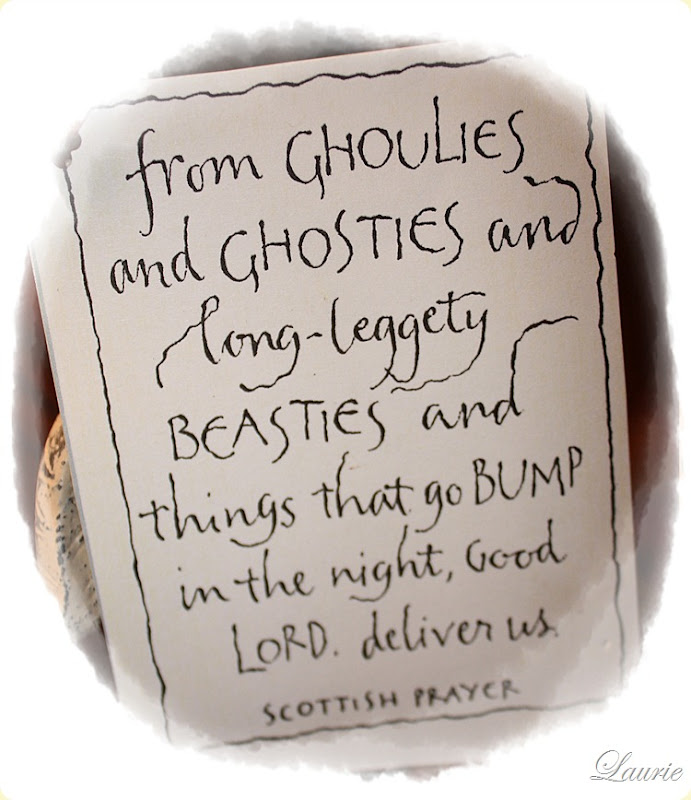 from GHOULIES
and GHOSTIES and
long-leggety
BEASTIES and
things that go BUMP
in the night, Good
LORD. deliver us.
SCOTTISH PRAYER
Laurie